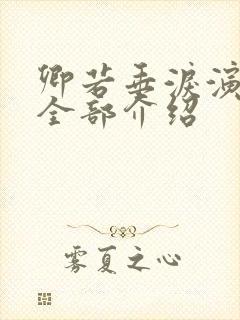 卿若垂泪演
全部介绍
雾夏之心